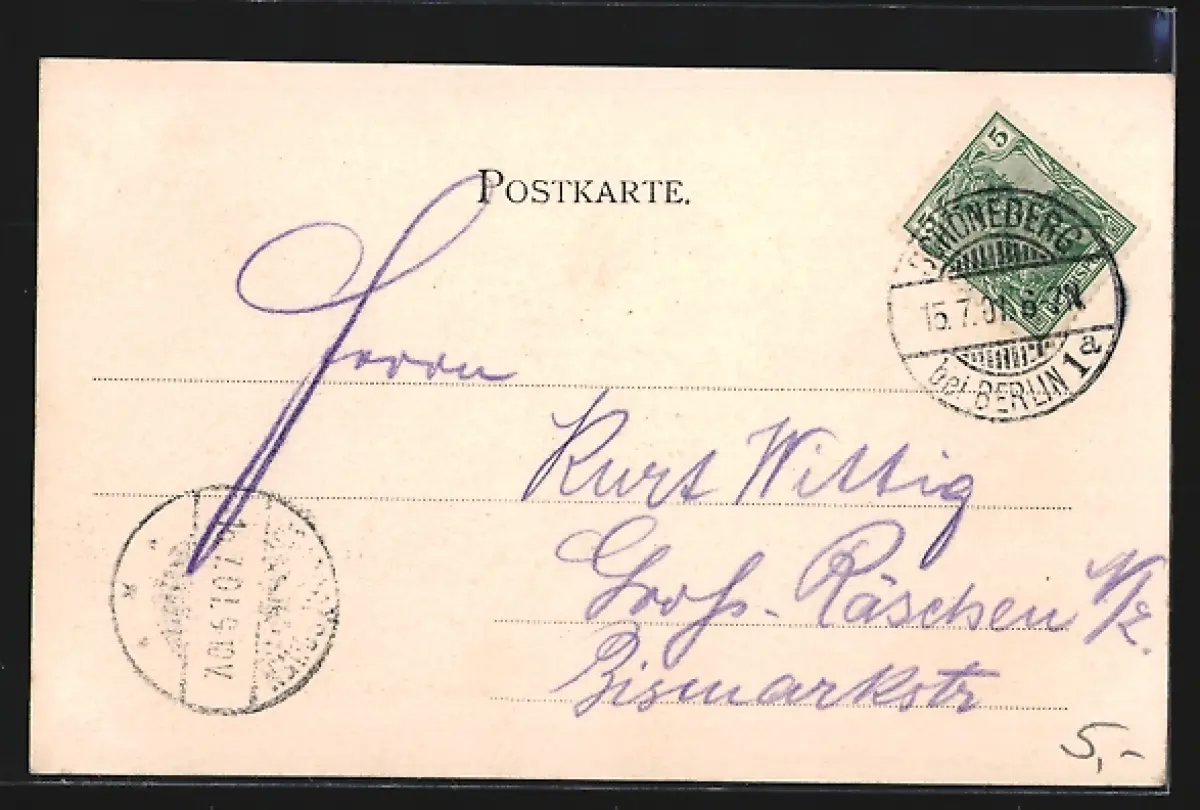 POSTKARTE.
5
SCHÖNEBERG
15.7.01. 6-7N
bei BERLIN 1a
Herrn
Kurt Wittig
Groß-Räschen N/L.
Bismarkstr
7.01.9-10V.
5,-